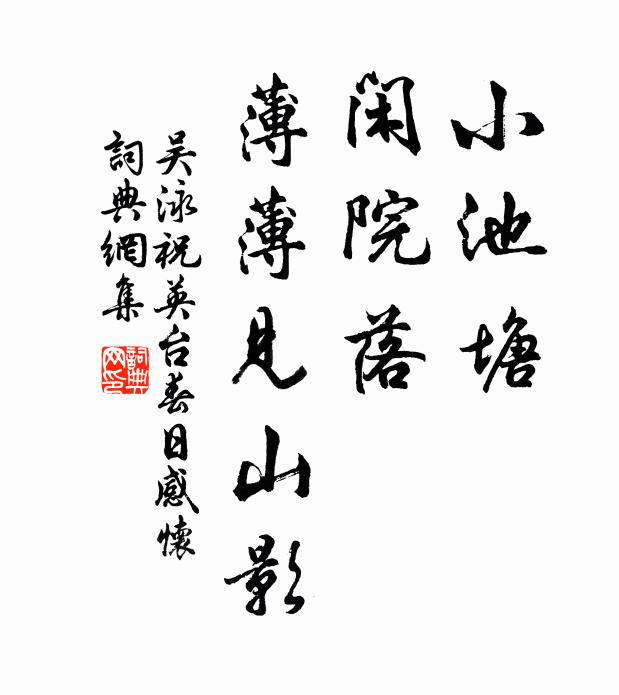 小池塘
閑院落
薄薄見山影
吴泳祝英台春日感懷
詞典網集
詞典网印